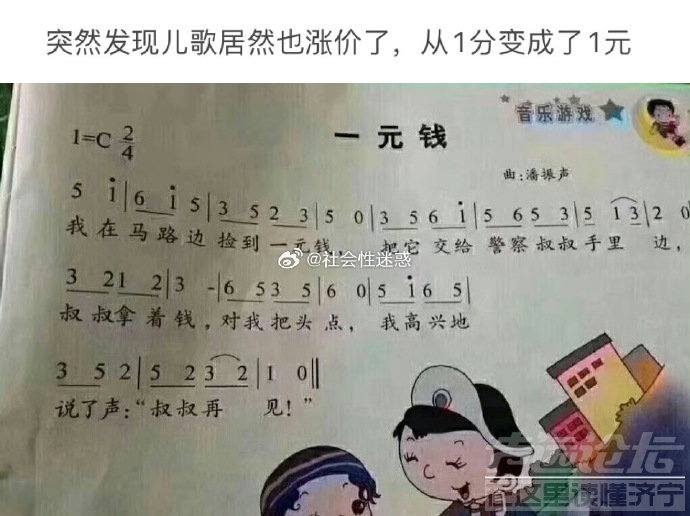 突然发现儿歌居然也涨价了，从1分变成了1元
音乐游戏
1=C 2/4
一元钱
曲:潘振声
5 i|6 i 5|3 5 2 3|5 0|3 5 6 i|5 6 5 3|5 1 3|2 0
我在马路边捡到一元钱，把它交给警察叔叔手里边，
@社会性迷惑
3 2 1 2|3 -|6 5 3 5|6 0|5 i 6 5|
叔叔拿着钱，对我把头点，我高兴地
3 5 2|5 2 3 2|1 0‖
说了声:“叔叔再见！”
在这里读懂济宁